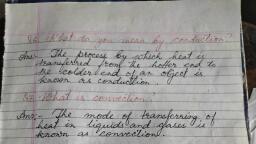 Q6. What do you mean by conduction?
Ans:- The process by which heat is
transferred from the hotter end to
the colder end of an object is
known as conduction.
Q7. What is convection?
Ans:- The mode of transferring of
heat in liquids and gases is
known as convection.